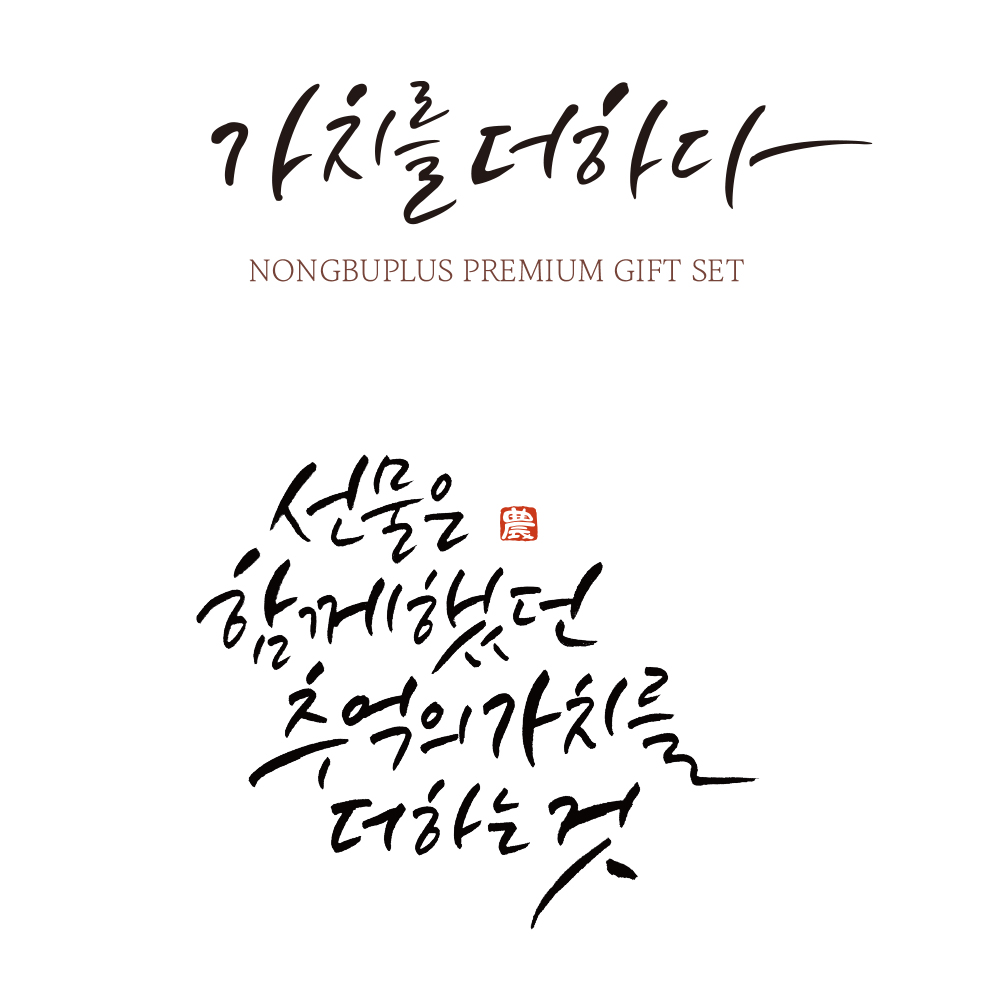 가치를 더하다
NONGBUPLUS PREMIUM GIFT SET
선물은 農
함께했던
추억의 가치를
더하는 것